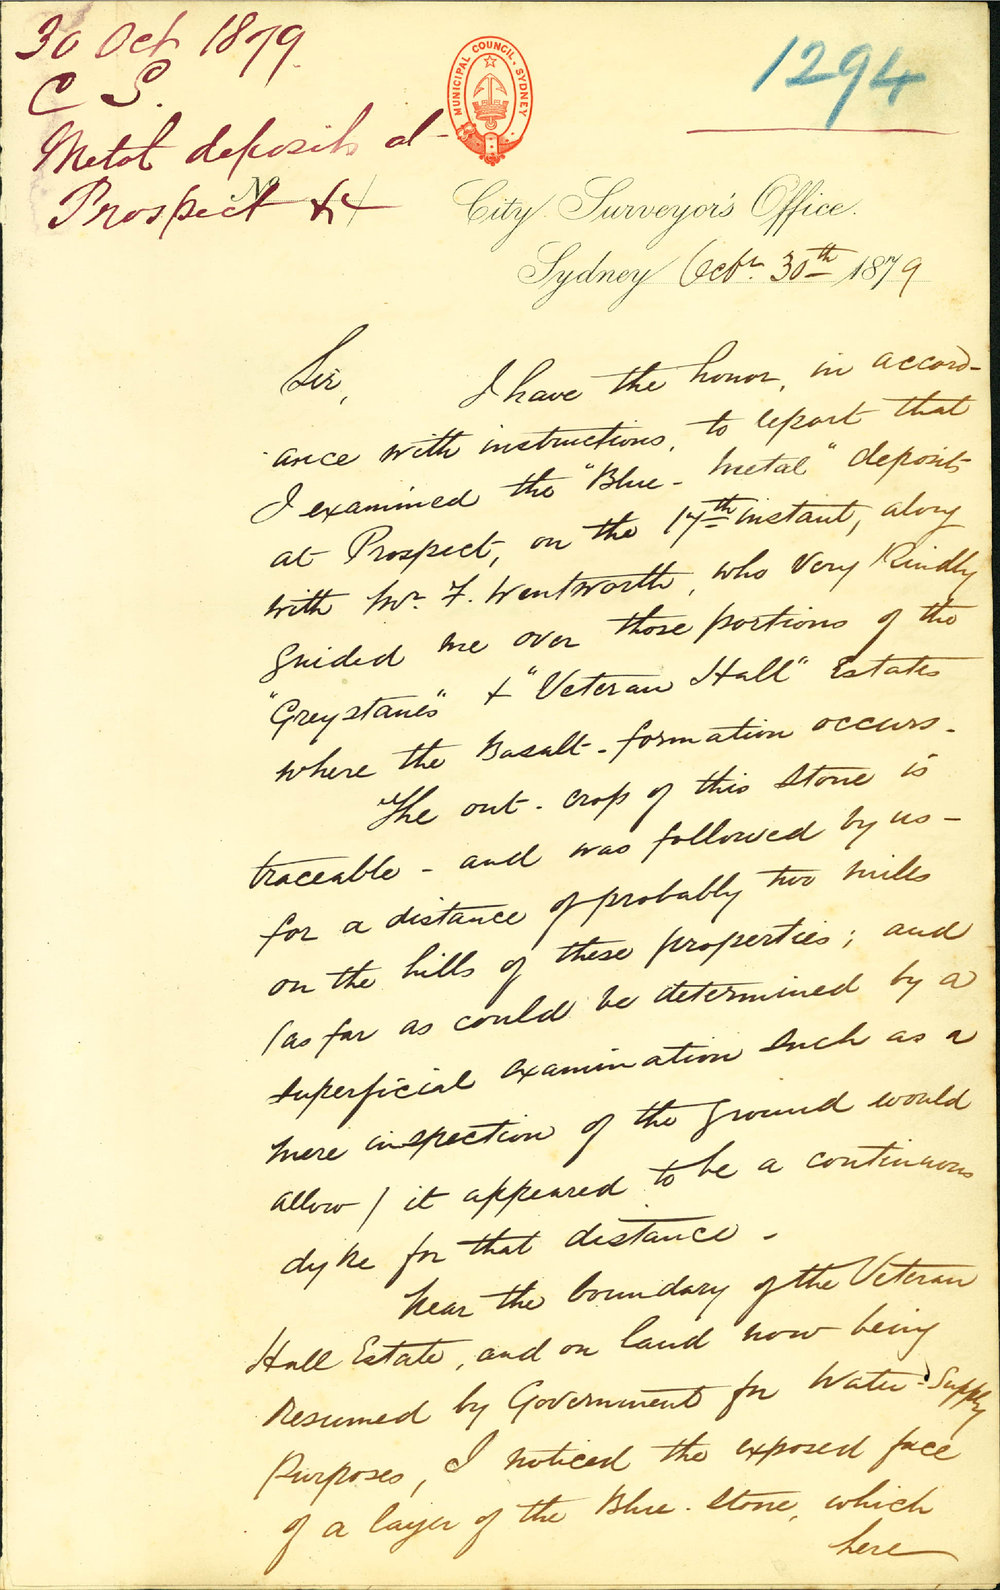 30 Oct 1879.
C S.
Metal deposits at
Prospect &c
1294
MUNICIPAL COUNCIL. SYDNEY.
No
City Surveyor's Office.
Sydney Octbr. 30th 1879
Sir, I have the honor, in accord-
ance with instructions, to report that
I examined the "Blue-Metal" deposits
at Prospect, on the 17th instant, along
with Mr. F. Wentworth, who very kindly
guided me over those portions of the
"Greystanes" & "Veteran Hall" Estates
where the Basalt-formation occurs.
The out-crop of this Stone is
traceable - and was followed by us -
for a distance of probably two miles
on the hills of these properties; and
(as far as could be determined by a
superficial examination such as a
mere inspection of the ground would
allow) it appeared to be a continuous
dyke for that distance.
Near the boundary of the Veteran
Hall Estate, and on land now being
resumed by Government for Water-Supply
Purposes, I noticed the exposed face
of a layer of the Blue-Stone, which
here